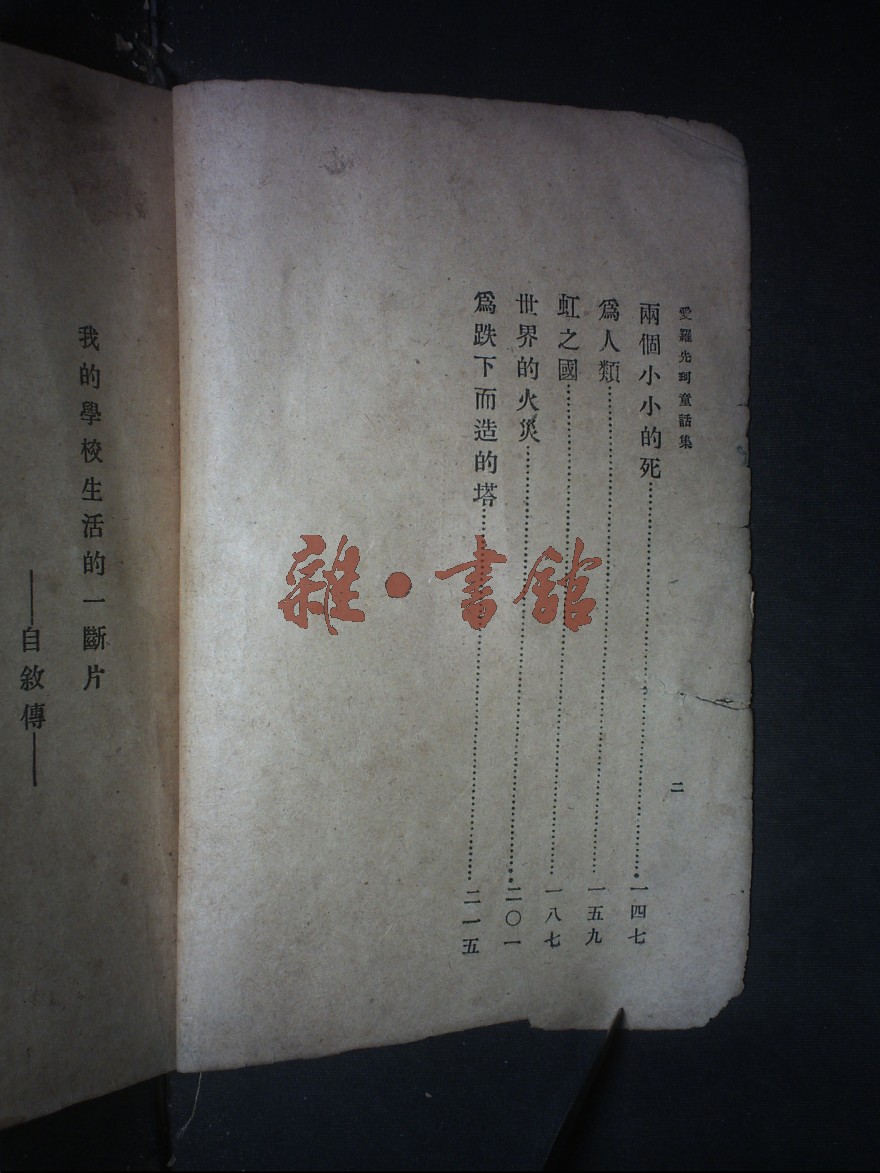 愛羅先珂童話集
兩個小小的死……一四七
爲人類……一五九
虹之國……一八七
世界的火災……二〇一
爲跌下而造的塔……二一五
二
我的學校生活的一斷片
——自敘傳——
雜·書館